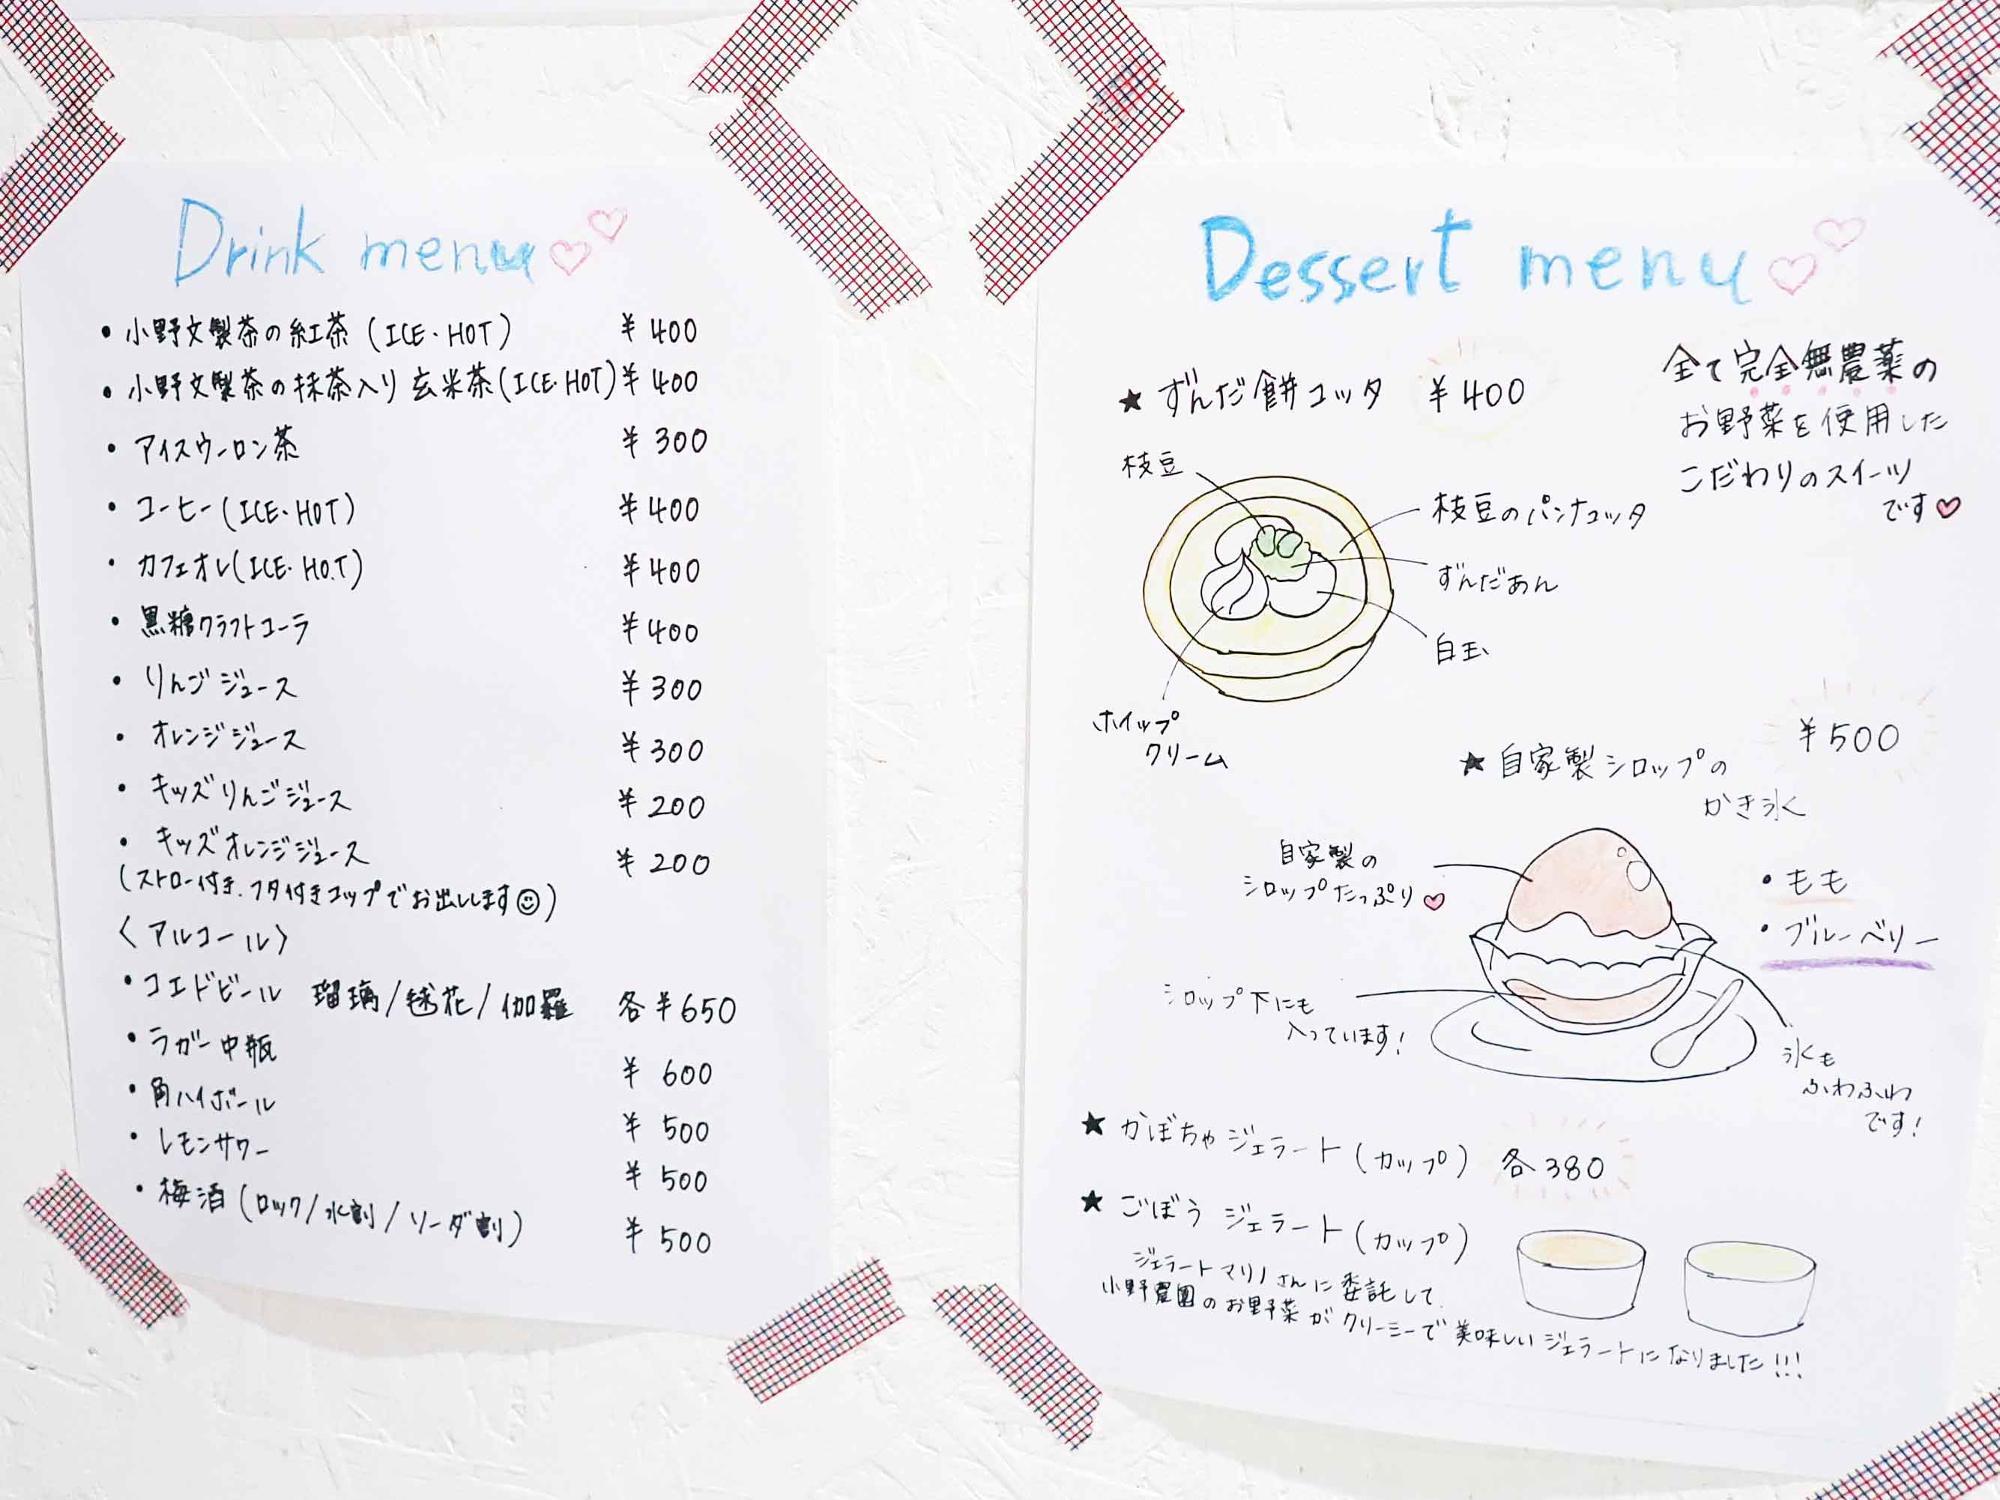 Drink menu♡♡
・小野文製茶の紅茶(ICE・HOT) ¥400
・小野文製茶の抹茶入り玄米茶(ICE・HOT) ¥400
・アイスウーロン茶 ¥300
・コーヒー(ICE・HOT) ¥400
・カフェオレ(ICE・HOT) ¥400
・黒糖クラフトコーラ ¥400
・りんごジュース ¥300
・オレンジジュース ¥300
・キッズりんごジュース ¥200
・キッズオレンジジュース ¥200
(ストロー付き、フタ付きコップでお出しします☺)
〈アルコール〉
・コエドビール 瑠璃/毬花/伽羅 各¥650
・ラガー中瓶 ¥600
・角ハイボール ¥500
・レモンサワー ¥500
・梅酒(ロック/水割/ソーダ割) ¥500
Dessert menu♡♡
全て完全無農薬の
お野菜を使用した
こだわりのスイーツ
です♡
★ずんだ餅コッタ ¥400
枝豆
枝豆のパンナコッタ
ずんだあん
白玉
ホイップ
クリーム
★自家製シロップの
かき氷
¥500
自家製の
シロップたっぷり♡
・もも
・ブルーベリー
シロップ下にも
入っています!
氷も
ふわふわ
です!
★かぼちゃジェラート(カップ) 各380
★ごぼうジェラート(カップ)
ジェラートマリノさんに委託して、
小野農園のお野菜がクリーミーで美味しいジェラートになりました!!!